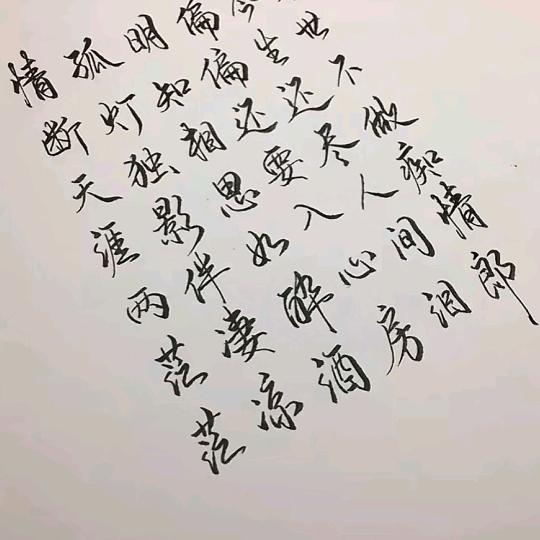 情断天涯两茫茫
孤灯独影伴凄凉
明知相思如醉酒
偏偏还要入心房
今生还尽人间泪
世不做痴情郎